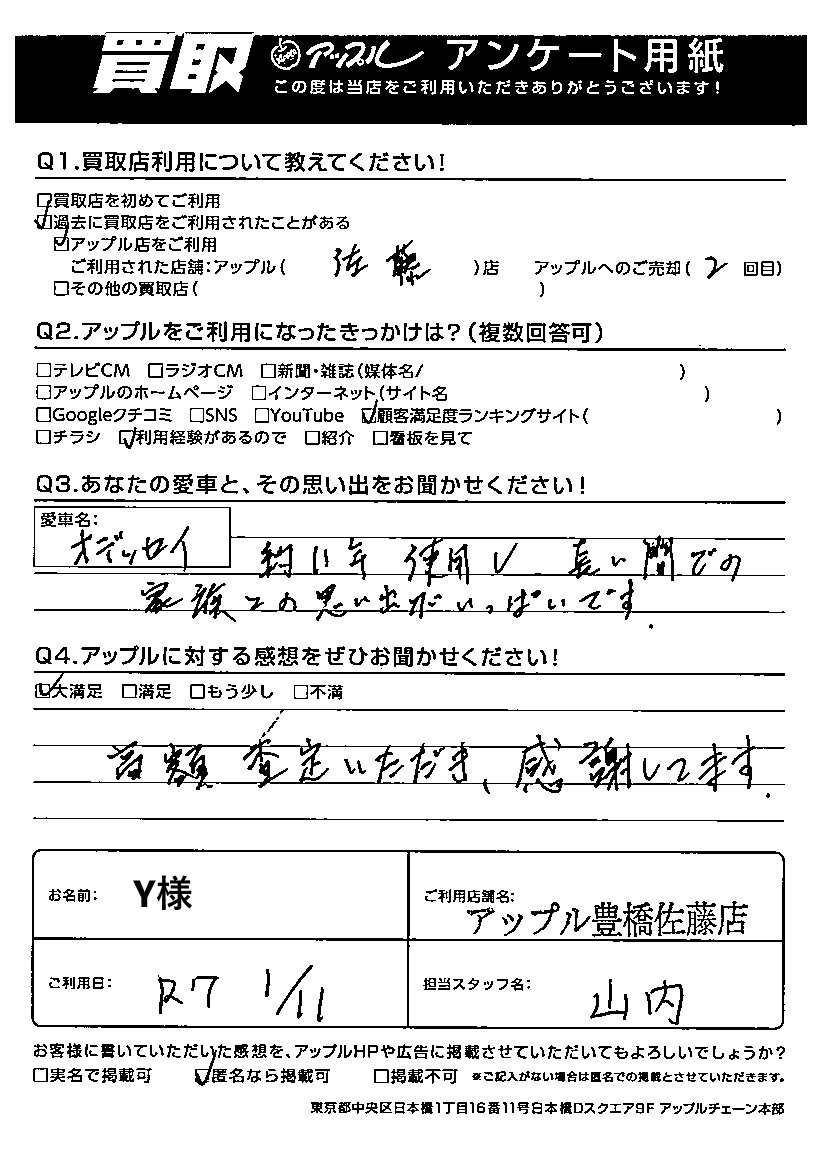 買取 アップル アンケート用紙
この度は当店をご利用いただきありがとうございます!
Q1.買取店利用について教えてください!
□買取店を初めてご利用
☑過去に買取店をご利用されたことがある
☑アップル店をご利用
ご利用された店舗:アップル( 佐藤 )店 アップルへのご売却( 2 回目)
□その他の買取店( )
Q2.アップルをご利用になったきっかけは?(複数回答可)
□テレビCM □ラジオCM □新聞・雑誌(媒体名/ )
□アップルのホームページ □インターネット(サイト名 )
□Googleクチコミ □SNS □YouTube ☑顧客満足度ランキングサイト( )
□チラシ ☑利用経験があるので □紹介 □看板を見て
Q3.あなたの愛車と、その思い出をお聞かせください!
愛車名:
オデッセイ 約11年 使用し 長い間での
家族との思い出がいっぱいです.
Q4.アップルに対する感想をぜひお聞かせください!
☑大満足 □満足 □もう少し □不満
高額査定いただき、感謝してます.
お名前: Y様 ご利用店舗名: アップル豊橋佐藤店
ご利用日: R7 1/11 担当スタッフ名: 山内
お客様に書いていただいた感想を、アップルHPや広告に掲載させていただいてもよろしいでしょうか?
□実名で掲載可 ☑匿名なら掲載可 □掲載不可 ※ご記入がない場合は匿名での掲載とさせていただきます。
東京都中央区日本橋1丁目16番11号日本橋Dスクエア9F アップルチェーン本部